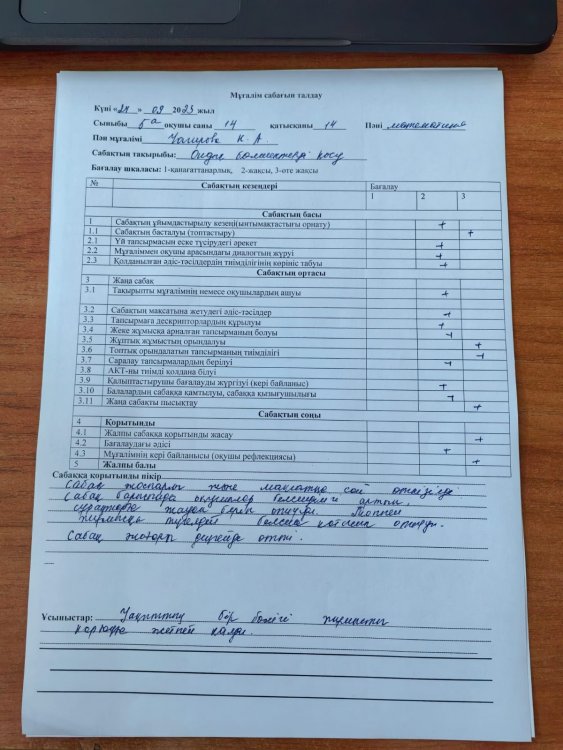 Мұғалім сабағын талдау
Күні «24» 09 2023 жыл
Сыныбы 5ᵃ оқушы саны 14 қатысқаны 14 Пәні математика
Пән мұғалімі К. А.
Сабақтың тақырыбы: Ондық бөлшектерді қосу
Бағалау шкаласы: 1-қанағаттанарлық, 2-жақсы, 3-өте жақсы
№ Сабақтың кезеңдері Бағалау
1 2 3
Сабақтың басы
1 Сабақтың ұйымдастырылу кезеңі(ынтымақтастығы орнату) +
1.1 Сабақтың басталуы (топтастыру) +
2.1 Үй тапсырмасын еске түсірудегі әрекет +
2.2 Мұғаліммен оқушы арасындағы диалогтың жүруі +
2.3 Қолданылған әдіс-тәсілдердің тиімділігінің көрініс табуы +
Сабақтың ортасы
3 Жаңа сабақ
3.1 Тақырыпты мұғалімнің немесе оқушылардың ашуы +
3.2 Сабақтың мақсатына жетудегі әдіс-тәсілдер +
3.3 Тапсырмаға дескрипторлардың құрылуы +
3.4 Жеке жұмысқа арналған тапсырманың болуы +
3.5 Жұптық жұмыстың орындалуы +
3.6 Топтық орындалатын тапсырманың тиімділігі +
3.7 Саралау тапсырмалардың берілуі +
3.8 АКТ-ны тиімді қолдана білуі
3.9 Қалыптастырушы бағалауды жүргізуі (кері байланыс) +
3.10 Балалардың сабаққа қамтылуы, сабаққа қызығушылығы +
3.11 Жаңа сабақты пысықтау +
Сабақтың соңы
4 Қорытынды
4.1 Жалпы сабаққа қорытынды жасау +
4.2 Бағалаудағы әдісі +
4.3 Мұғалімнің кері байланысы (оқушы рефлекциясы) +
5 Жалпы балы +
Сабаққа қорытынды пікір
Сабақ жоспарлы және мақсатқа сай өткізілді
Сабақ барысында оқушылар белсенділігі артып,
сұрақтарға жауап беріп отырды. Топпен
жұмысқа түгелдей белсене қатысып отырды.
Сабақ жоғары деңгейде өтті.
Ұсыныстар: Уақыттың бір бөлігі жұмысты
қорғауға жетпей қалды.